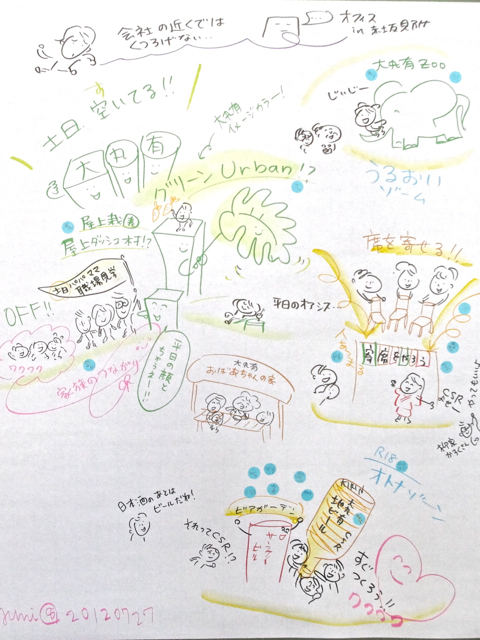 会社の近くでは
くつろげない…
オフィス
土日 空いてる!!
す
大丸有
イメージカラー!
大丸有ZOO
じぃじー
大 丸 有
グリーン Urban!?
うるおい
ゾーン
屋上栽
屋上ダッシュ村!?
席を寄せる!!
土日パパママ
職場見学
OFF!!
平日のオアシス…
ワクワク
家族のつながり
平日の顔と
ちがうぞー!!
大丸有
おばあちゃんの家
CSR
やってもいいよ
R18
オトナゾーン
日本酒のあとは
ビールだね!
それってCSR!?
ビアガーデン
大丸有 CSR
地ビール
すぐ
つくろう!!
ワクワク
20120727